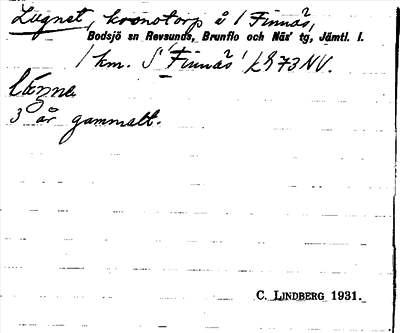 Lugnet, kronotorp å 1 Finnäs,
Bodsjö sn Revsunds, Brunflo och Näs' tg, Jämtl. l.
1 km. S 'Finnäs' k 73 NV.
länne
3 år gammalt.
C. LINDBERG 1931.